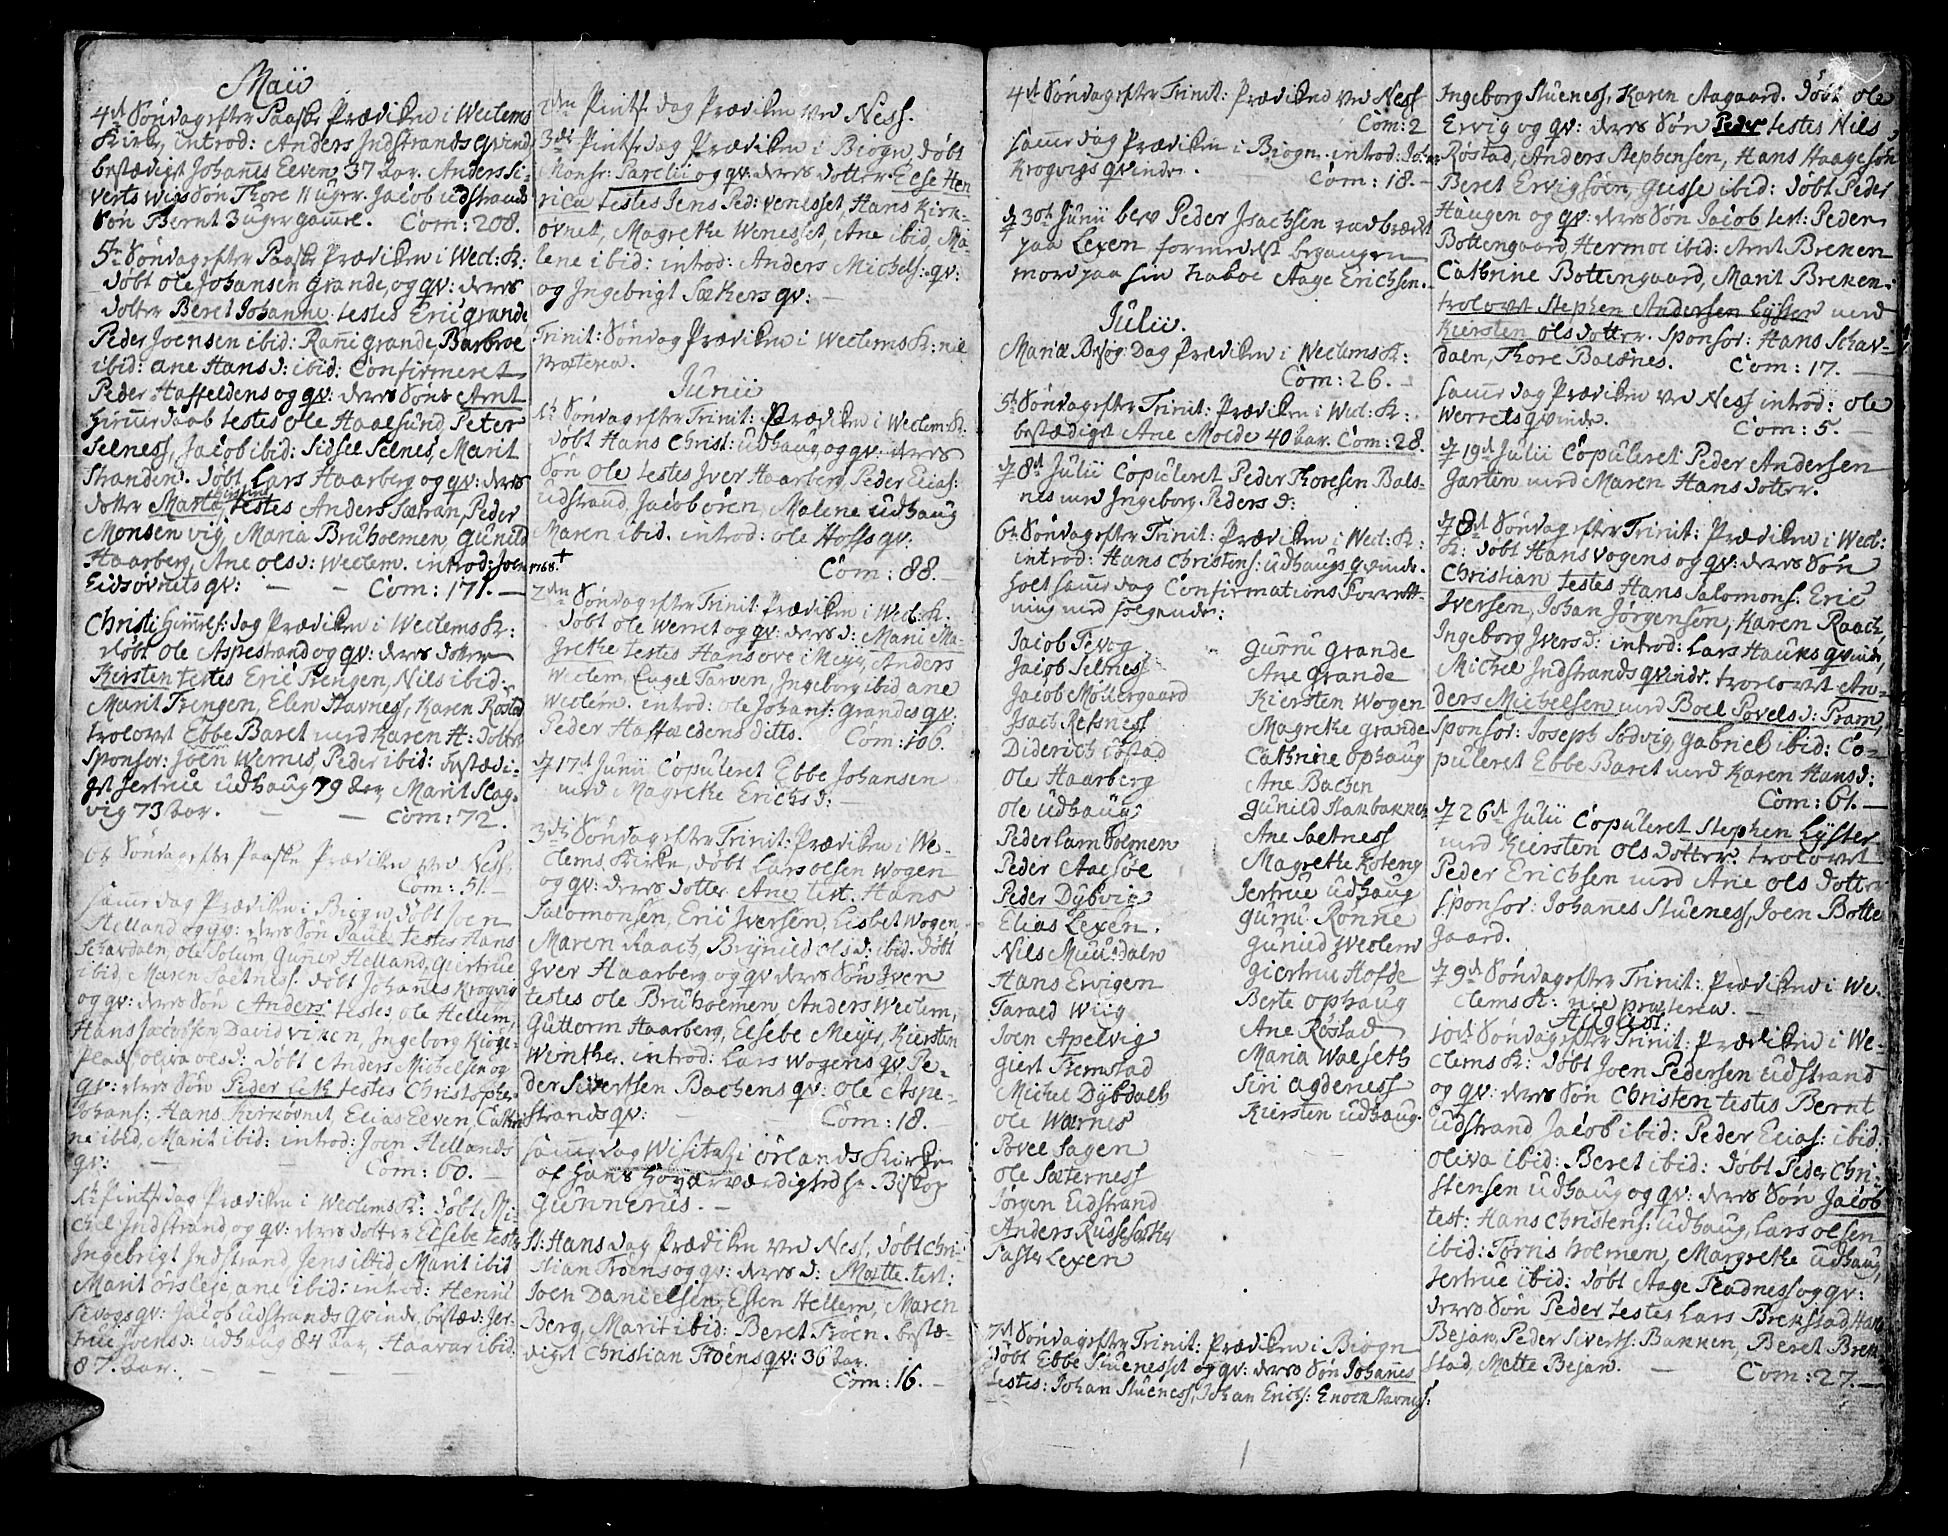 Maii
4de Søndag efter Paaske Prædiken i Weclems
Kirk, introd: Anders Indstrands qvinde
bestædigt Johanes Eeven 37 aar. Anders Si-
verts wigs Søn Thore 11 uger. Jacob udstrands
Søn Bernt 3 uger gammel. Com: 208.
5te Søndag efter Paaske Prædiken i Wecl: K:
døbt ole Johansen Grande, og qv: deres
dotter Beret Johanne. testes Eric grande
Peder Joensen ibid: Rani grande, Barbroe
ibid: ane Hans d: ibid: Confirmeret
Peder Haffeldens og qv: deres Søns Arnt
himmerdaab testes ole Haalsund, Peter
Selness, Jacob ibid: Sidsel Selnes, Marit
Stranden. døbt Lars Haarberg og qv: deres
dotter Marta testes Anders Sætran, Peder
Monsen vig, Maria Bruholmen, Gunild
Haarberg, Ane ols d: Weclem. introd: Joen
Eidsøvnets qv: - - Com: 171. -
Christi Himmelf: dag Prædiken i Weclems K:
døbt ole Aspestrand og qv: deres dotter
Kiersten testes Eric Trengen, Nils ibid:
Marit Trengen, Elen Stavnes, Karen Røstad
trolovet Ebbe Baret med Karen H: dotter
sponsor: Joen Wernes, Peder ibid: bestædi-
get Jertrue udhaug 79 aar, Marit Slag-
vig 73 aar. - - Com: 72.
6te Søndag efter Paaske Prædiken ved Ness.
Com: 51. -
samme dag Prædiken i Biogn, døbt Joen
Helland og qv: deres Søn Paul testes Hans
Schavdaln, ole Solum, Guner Helland, Giertrue
ibid, Maren Sætness. døbt Johanes Krogvig
og qv: deres Søn Anders testes ole Hellem,
Hans Jacobsen, David viken, Ingeborg Kroge-
plads oliva ols d: døbt Anders Michelsen og
qv: deres Søn Peder testes Christopher
Johans: Hans Kirkøvnet Elias Eeven, Cathri
ne ibid, Marit ibid: introd: Joen Hellands
qv: - - Com: 60. -
1te Pintse dag Prædiken i Weclems K: døbt Mi-
chel Indstrand og qv: deres dotter Elsebe testes
Ingebrigt Indstrand, Jens ibid Marit ibid
Marit ørsleje ane ibid: introd: Henric
Tevogs qv: Jacob udstrands qvinde, bestæd: Jer-
true Joens d: udhaug 84 aar, Haavar ibid.
87. aar. - - -
2den Pintse dag Prædiken ved Ness.
3die Pintse dag Prædiken i Biogn, døbt
Monsr: og qv: deres dotter Else Hen
rica testes Jens Ped: venesset, Hans Kirk-
øvnet, Magrethe Wenesset, Ane ibid, Ma-
lene ibid: introd: Anders Michels: qv:
og Ingebrigt Sæthers qv: -
Trinit: Søndag Prædiken i Weclems K: nil
præterea.
Junii
1te Søndag efter Trinit: Prædiken i Weclem: K:
døbt Hans Christ: udhaug og qv: deres
Søn ole testes Iver Haarberg, Peder Elias:
udstrand, Jacob ören, Malene udhaug
Maren ibid. introd: ole Hoffs qv.
1768. + Com: 88. -
2den Søndag efter Trinit: Prædiken i Wecl: K:
døbt ole Werret og qv: deres d: Mari Ma-
grethe testes Hans ove i Meijr, Anders
Weclem, Engel Tarven, Ingeborg ibid ane
Weclem. introd: ole Johans: Grandes qv.
Peder Haffældens ditto. Com: 106.
d 17d Junii Copuleret Ebbe Johansen
med Magrethe Erichs d: -
3die Søndag efter Trinit: Prædiken i We-
clems Kirke, døbt Lars olsen Wogen
og qv: deres dotter Ane test. Hans
Salomonsen, Eric Iversen, Lisbet Wogen,
Maren Raach, Brynild ols d: ibid: døbt
Iver Haarberg og qv deres Søn Iver
testes ole Bruholmen, Anders Weclem,
Guttorm Haarberg, Elsebe Meijr, Kiersten
Winthe. introd: Lars Wogens qv Pe-
der Sivertsen Bachens qv: ole Aspe-
strands qv: Com: 18. -
samme dag Visitatz i örlands Kirke
af Hans Høyærværdighed Hr. Biskop
Gunnerus. -
St: Hans dag Prædiken ved Ness, døbt Chri-
stian Troens og qv: deres d: Mætte. test:
Joen Danielsen, Esten Hellem, Maren
Berg, Marit ibid: Beret Troen. bestæ-
diget Christian Troens qv: 36 aar.
Com: 16. -
4de Søndag efter Trinit: Prædiken ved Ness
Com: 2
samme dag Prædiken i Biogn. introd: Johan
Krogvigs qvinde. Com: 18. -
d 30te Junii blev Peder Isachsen radbræket
paa Lexen formedelst begangen
mord paa sin naboe Aage Erichsen. -
Julii.
Mariæ Besøg: Dag Prædiken i Weclems K:
Com: 26. -
5te Søndag efter Trinit: Prædiken i Wecl: K:
bestædiget Ane Molde 40 aar. Com: 28.
d 8de Julii Copuleret Peder Thoresen Bals-
nes med Ingeborg Peders d:
6te Søndag efter Trinit: Prædiken i Wecl: K:
introd: Hans Christens: udhaugs qvinde.
holt samme dag Confirmations Forrett-
ning med følgende:
Jacob Tevog
Jacob Selness
Jacob Mollergaard
Isach Ressness
Diderich Opstad
ole Haarberg
ole udhaug
Peder Lamholmen
Peder Aalsøe
Peder Dybvig
Elias Lexen.
Nils Muusdaln
Hans Ervigen
Tarald Wiig
Joen Apelvig
Giert Tremstad
Michel Dybdahl
ole Wærnes
Povel Sagen
ole Sæterness
Jørgen Eidstrand
Anders Russesæther
Lexen
Gurru Grande
Ane Grande
Kiersten Wogen
Magrethe Grande
Cathrine ophaug
Ane Bachen
Gunild Stanbakken
Ane Sætness
Magrethe Koteng
Jertrue udhaug
Gurru Rønne
Gunild Weclem
Giertrue Hofde
Berte ophaug
Ane Røstad
Maria Walseth
Siri Agdeness
Kiersten udhaug.
7de Søndag efter Trinit: Prædiken i Biogn
døbt Ebbe Stuenesset og qv: deres Søn Johannes
testes: Johan Stueness, Johan Erichs: Enock Stavness:
Ingeborg Stueness, Karen Aagaard. døbt ole
Ervig og qv: deres Søn Peder testes Nils
Røstad, Anders Stephensen, Hans Haagesøn
Beret Ervigsøen, Gusse ibid: døbt Peder
Haugen og qv: deres Søn Jacob test: Peder
Bottengaard, Hermoe ibid: Arnt Breken
Cathrine Bottengaard, Marit Breken.
trolovet Stephen Andersen Lyster med
Kiersten ols dotter. Sponsor: Hans Schav-
daln, Thore Balsnes. Com: 17. -
samme dag Prædiken ved Ness introd: ole
Werrets qvinde. Com: 5. -
d 19d Julii Copuleret Peder Andersen
Garten med Maren Hans dotter.
d 8de Søndag efter Trinit: Prædiken i Wecl:
K: døbt Hans Vogens og qv: deres Søn
Christian testes Hans Salomons: Eric
Iversen, Johan Jørgensen, Karen Raach,
Ingeborg Ivers d: introd: Lars Hauks qvinde,
Michel Indstrands qvinde. trolovet An-
ders Michelsen med Boel Povels d: Pram,
sponsor: Joseph Sodvig, Gabriel ibid: Co-
puleret Ebbe Baret med Karen Hans d:
Com: 61. -
d 26d Julii Copuleret Stephen Lyster
med Kiersten ols dotter. trolovet
Peder Erichsen med Ane ols dotter
sponsor: Johanes Stueness, Joen Botte
gaard.
d 9de Søndag efter Trinit: Prædiken i We-
clems K: nil præterea. -
August:
10de Søndag efter Trinit: Prædiken i We-
clems K: døbt Joen Pedersen udstrand
og qv: deres Søn Christen testes Bernt
udstrand Jacob ibid: Peder Elias: ibid:
oliva ibid: Beret ibid: døbt Peder Chri-
stensen udhaug og qv: deres Søn Jacob
test: Hans Christens: udhaug, Lars olsen
ibid: Tørnis holmen, Margrethe udhaug,
Jertrue ibid: døbt Aage Pladness og qv:
deres Søn Peder testes Lars Brekstad, Hans
Bejan, Peder Siverts: Bakken, Beret Brek
stad, Mette Bejan. - Com: 27. -